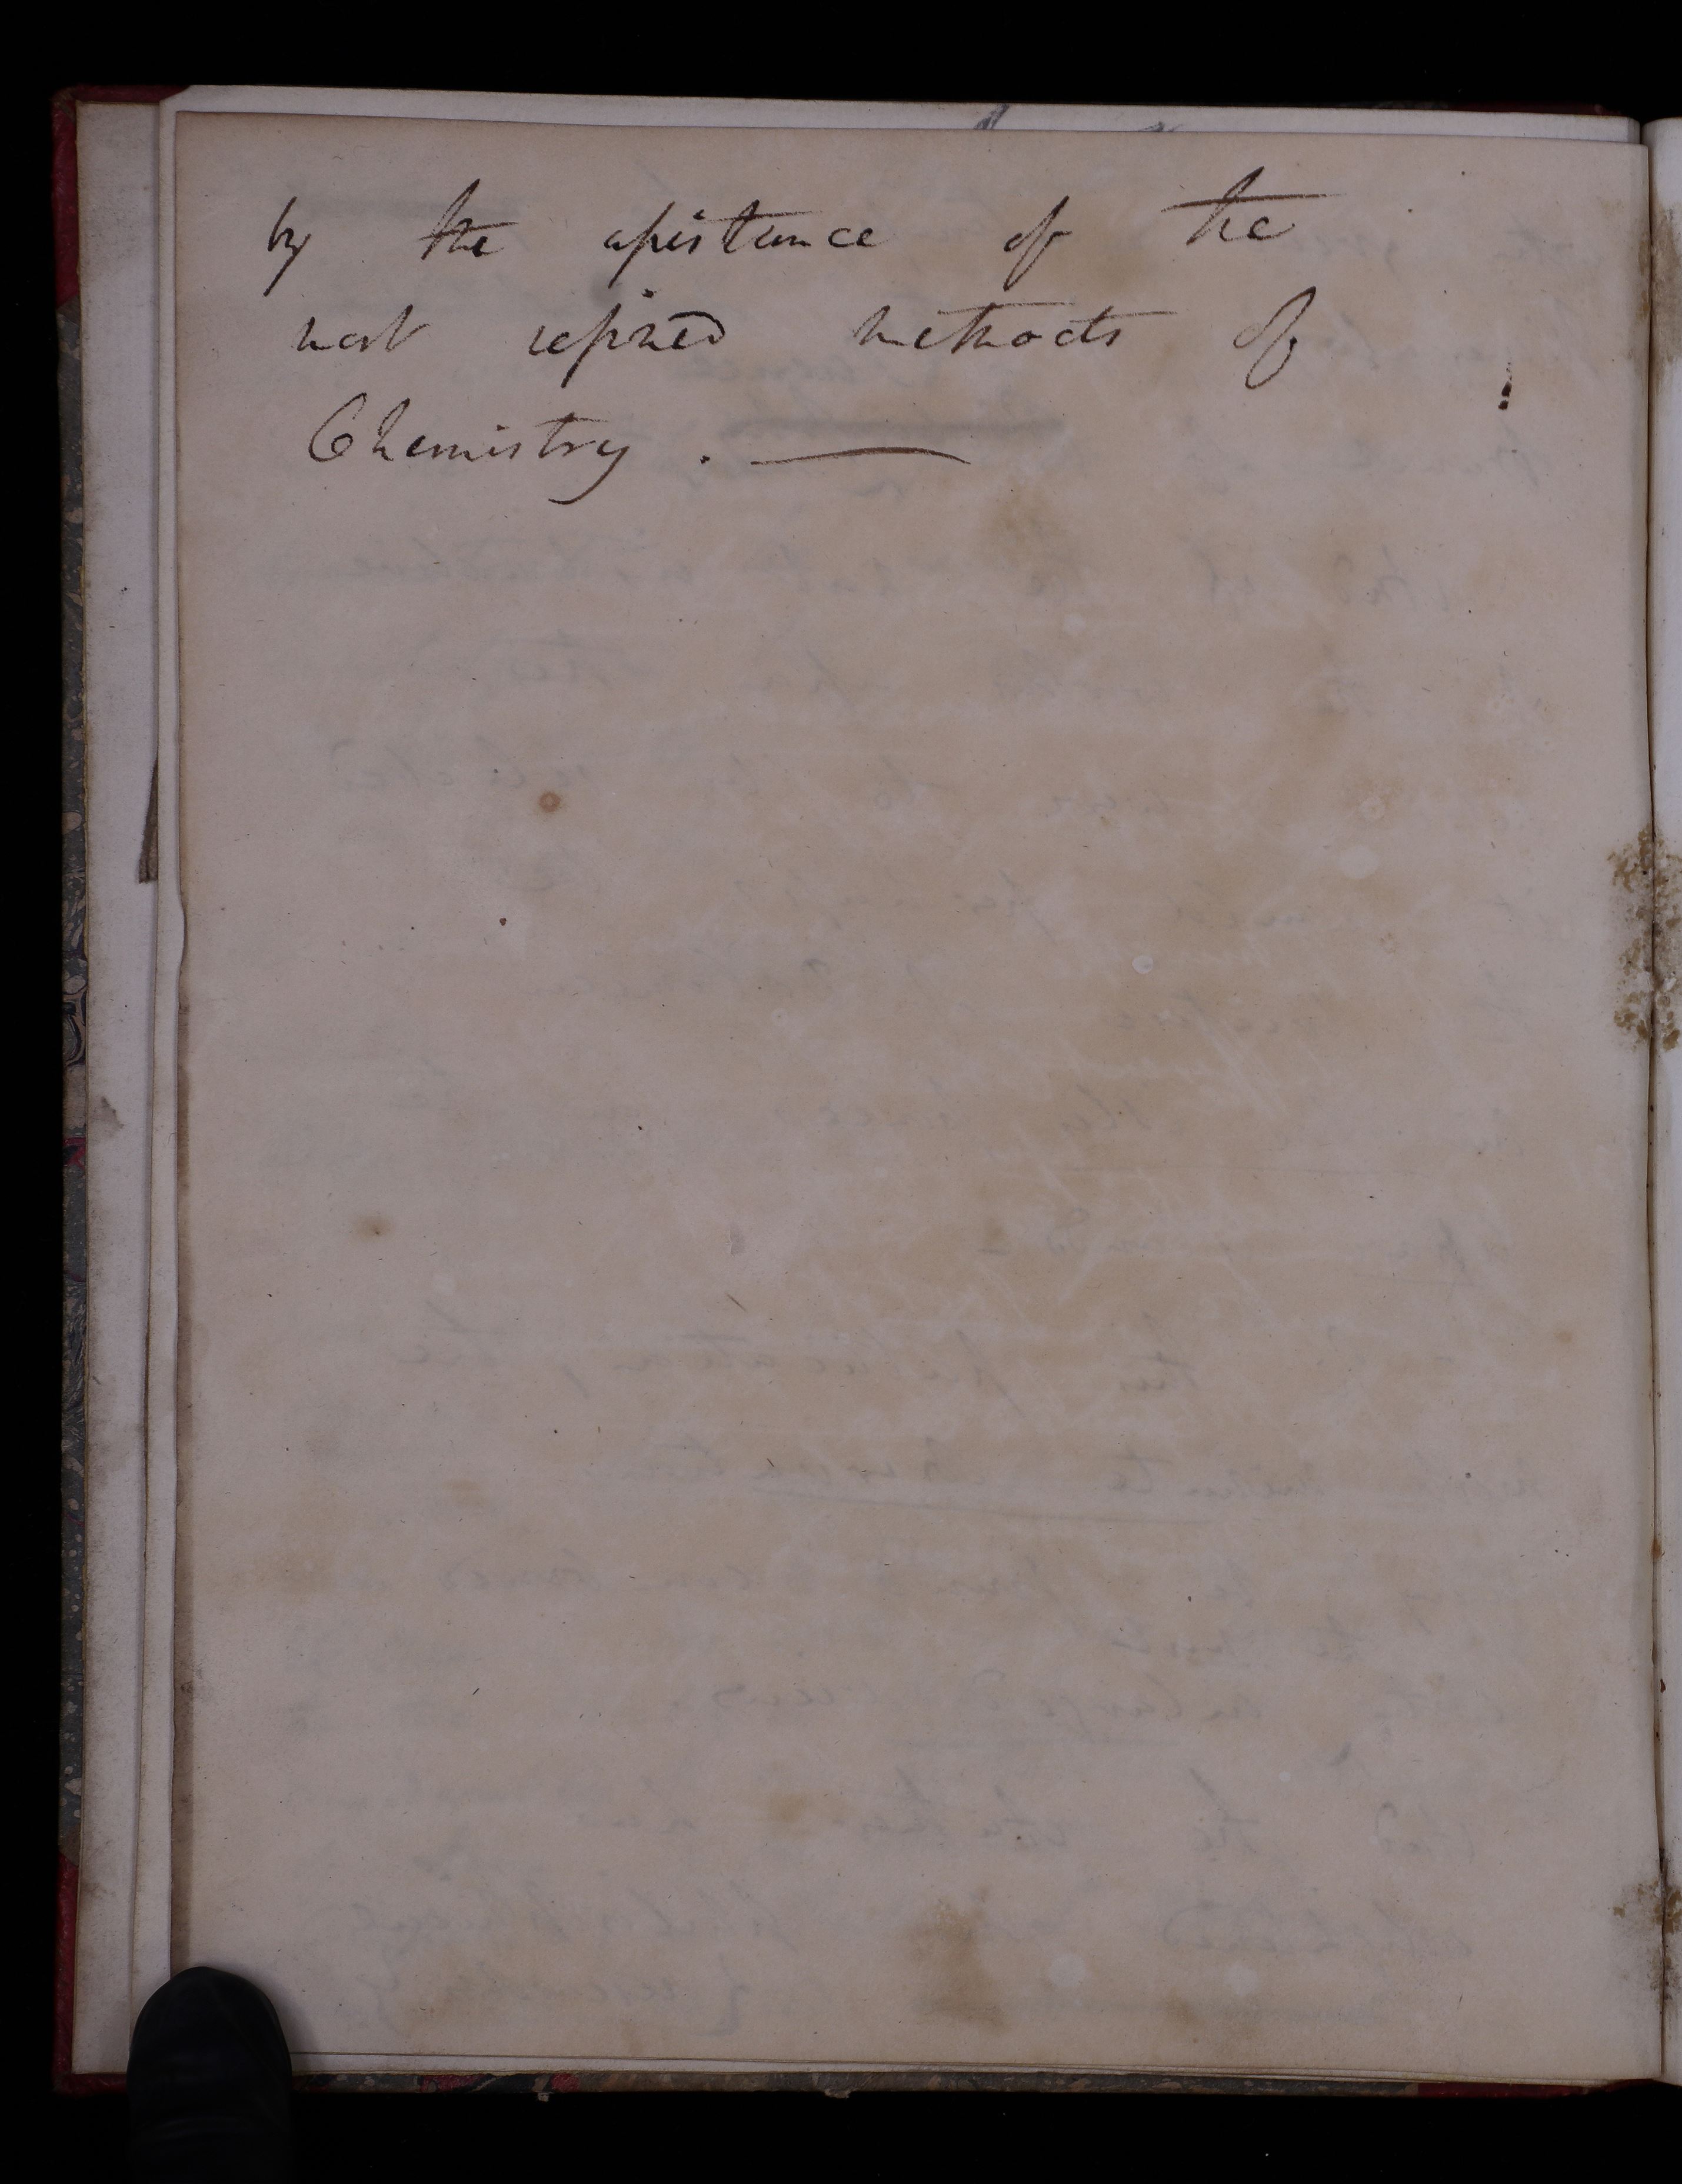 by the assistance of the
most refined methods of
Chemistry . ———